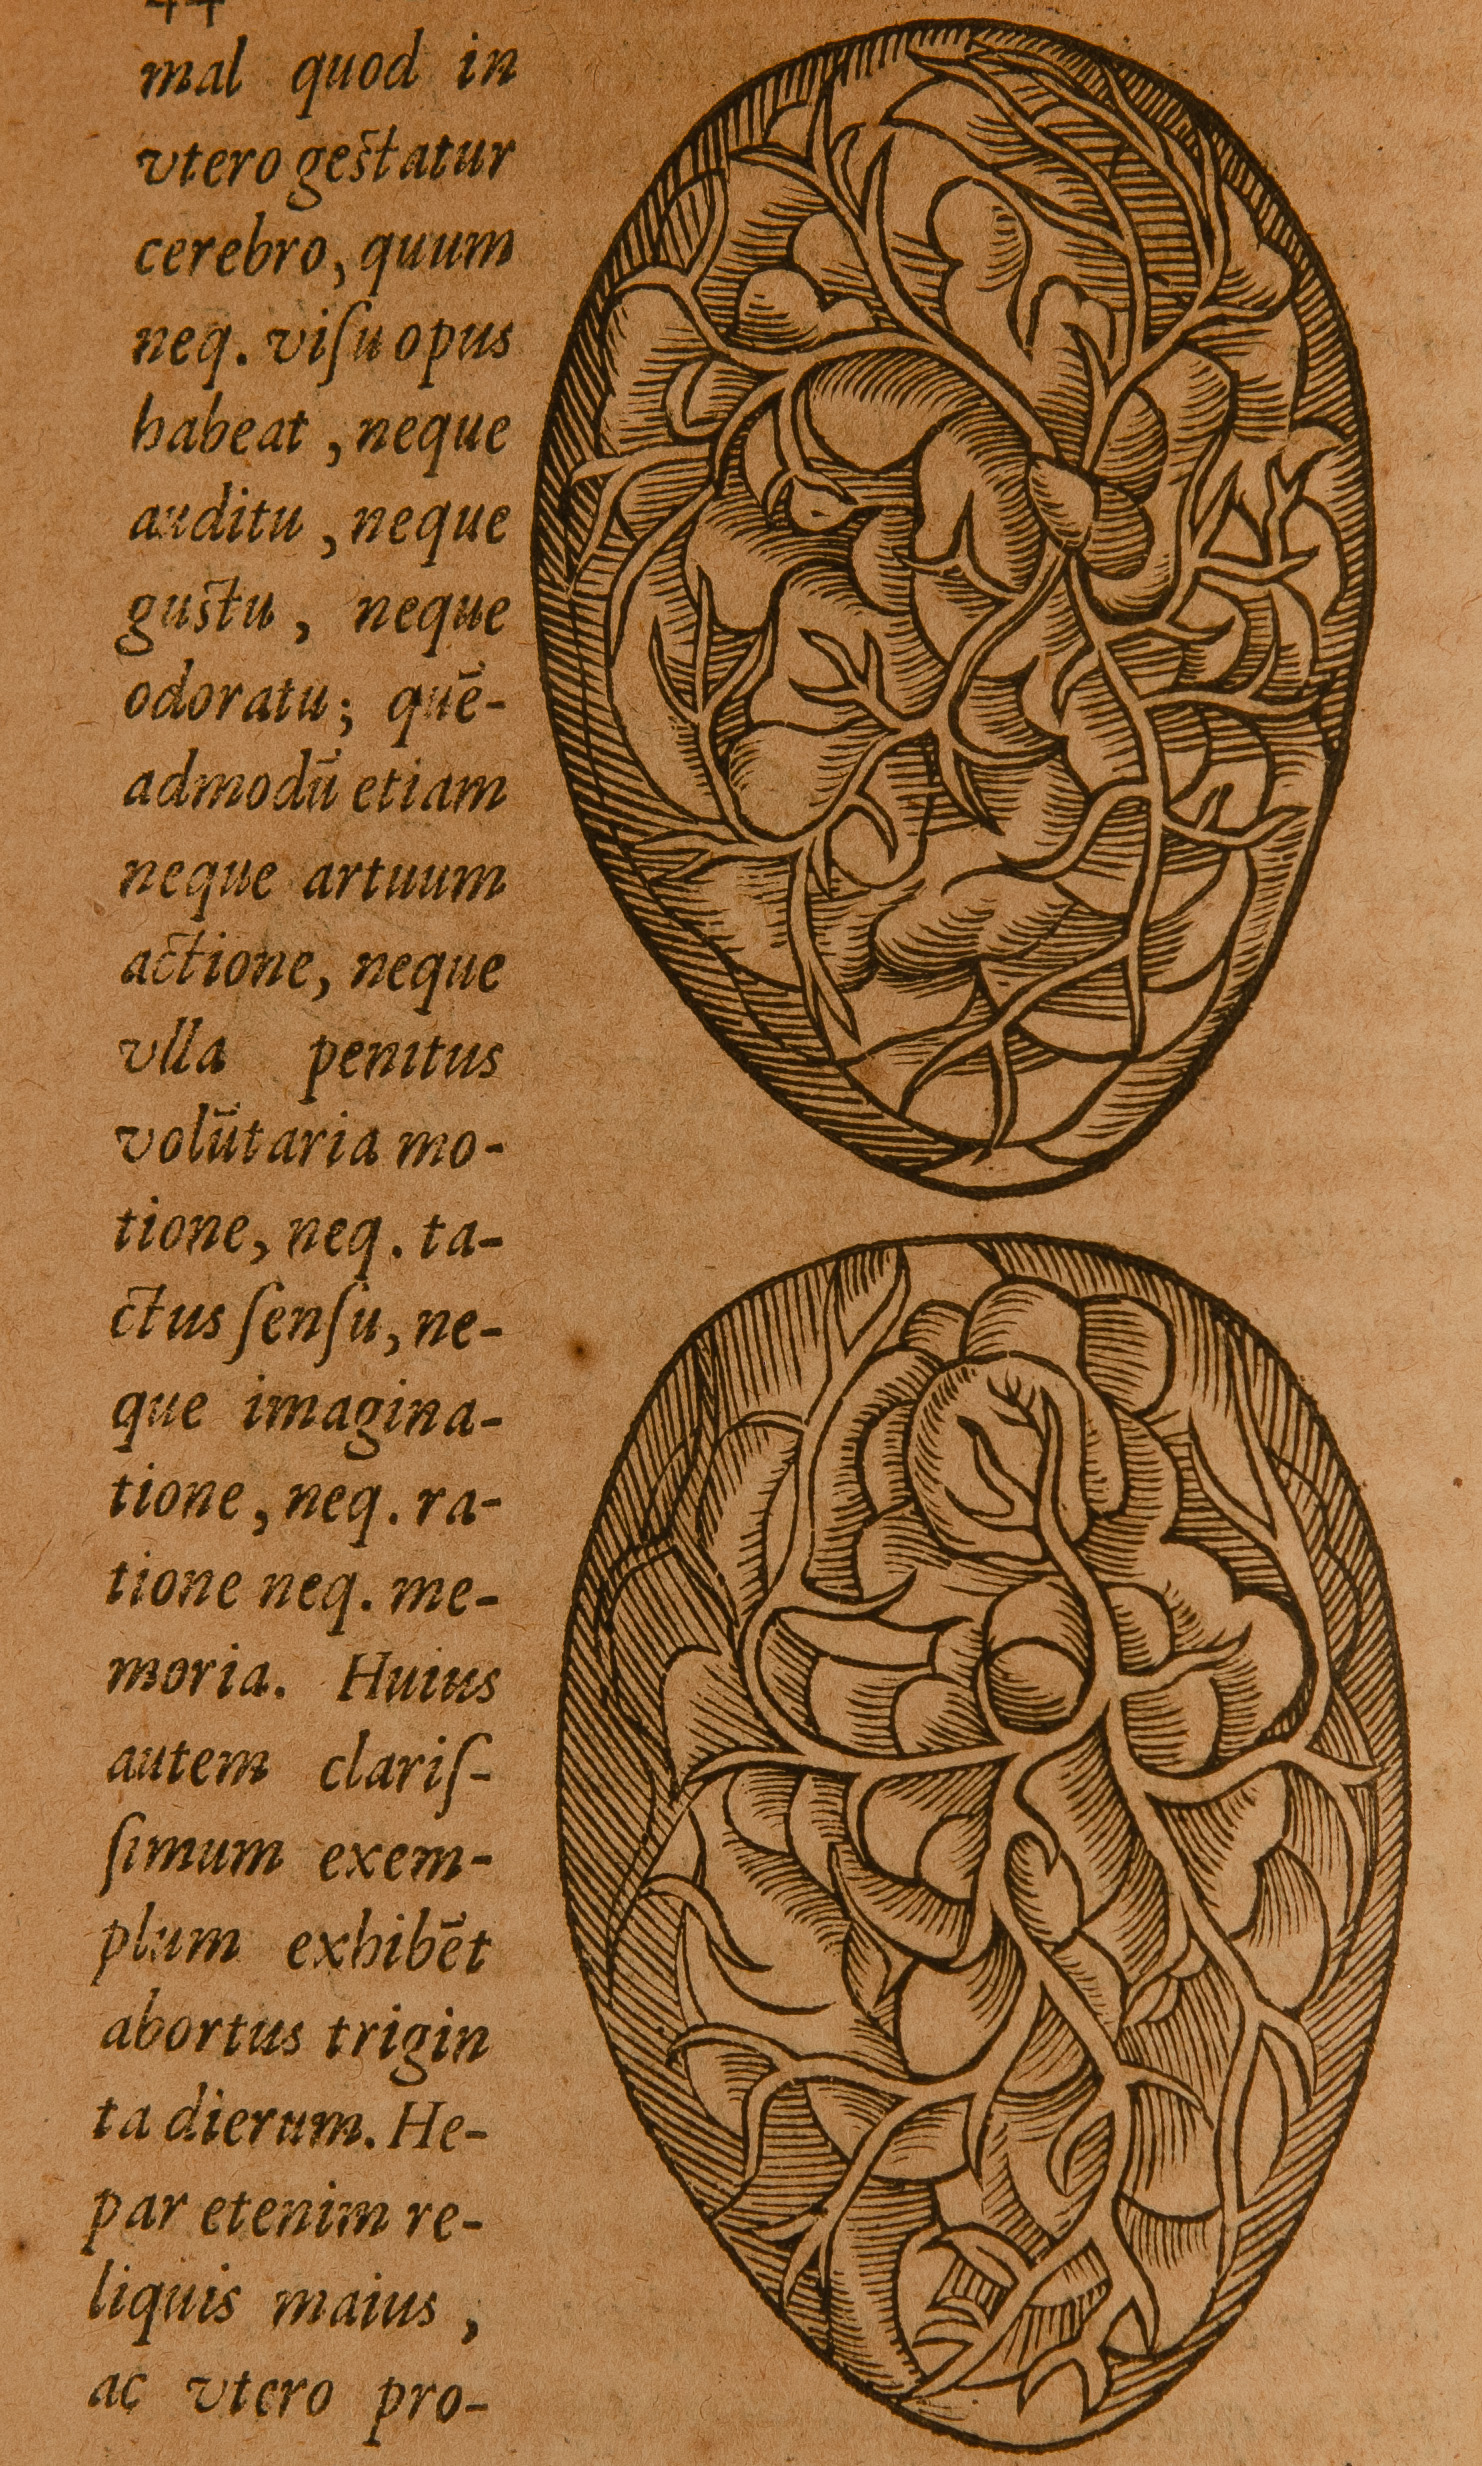 44
mal quod in
vtero gestatur
cerebro, quum
neq. viſu opus
habeat, neque
auditu, neque
gustu, neque
odoratu; quē-
admodū etiam
neque artuum
actione, neque
vlla penitus
volūtaria mo-
tione, neq. ta-
ctus ſenſu, ne-
que imagina-
tione, neq. ra-
tione neq. me-
moria. Huius
autem clariſ-
ſimum exem-
plum exhibēt
abortus trigin
ta dierum. He-
par etenim re-
liquis maius,
ac vtero pro-